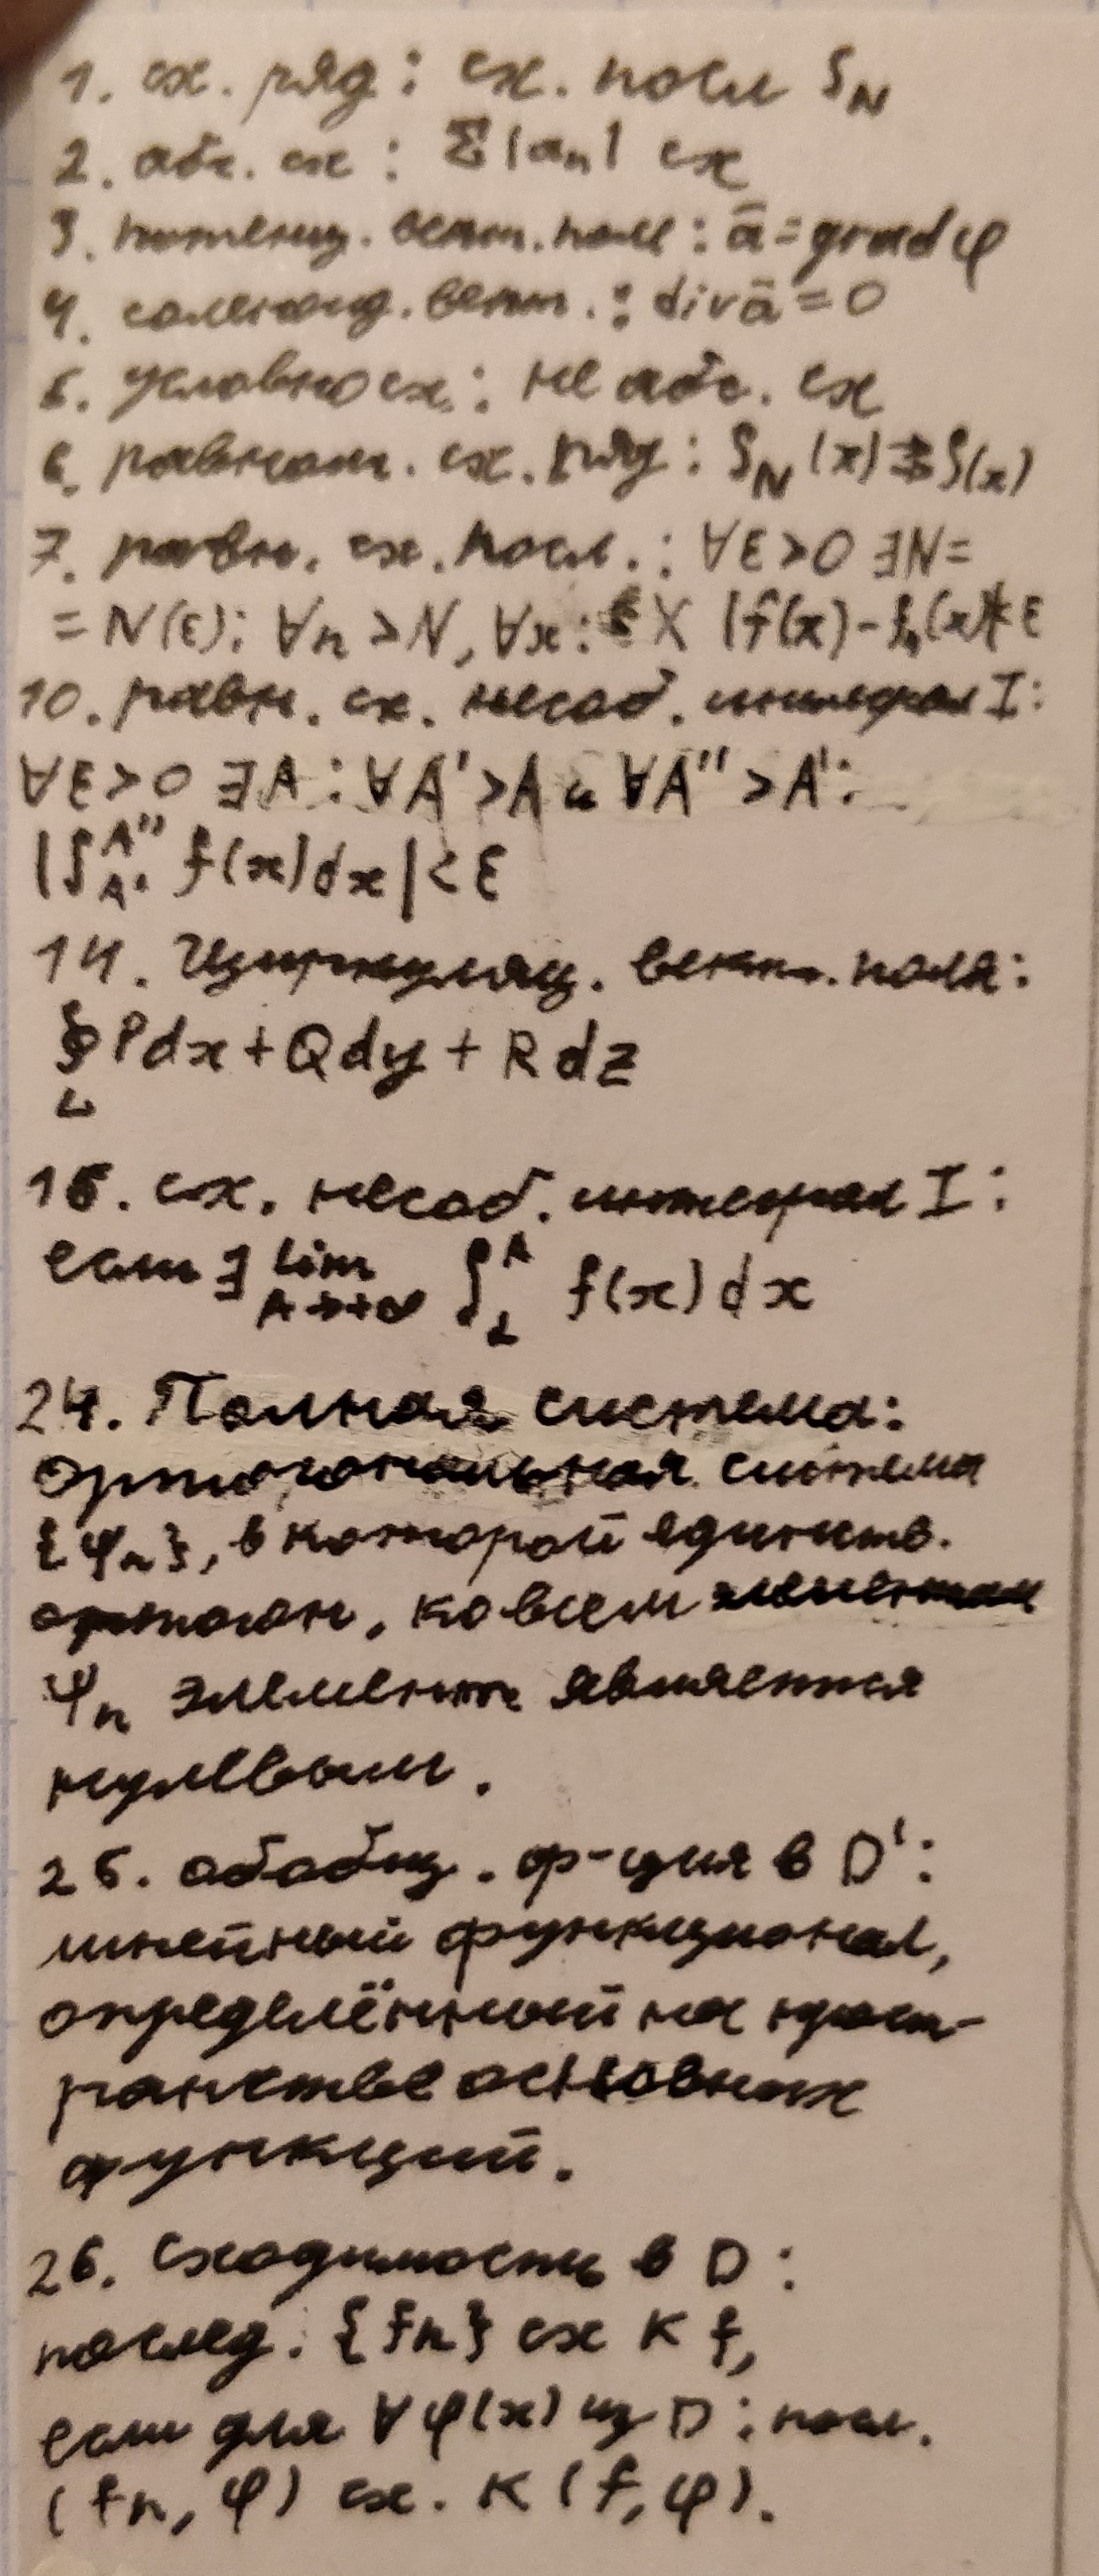 1. сх. ряд: сх. посл S_N
2. абс. сх: Σ|aₙ| сх
3. потенц. вект. поле: ā = grad φ
4. соленоид. вект.: div ā = 0
5. условно сх.: не абс. сх
6. равном. сх. ряд: S_N(x) ⇉ S(x)
7. равн. сх. посл.: ∀ε>0 ∃N=
= N(ε): ∀n > N, ∀x: X |f(x) - fₙ(x)| < ε
10. равн. сх. несоб. интеграл I:
∀ε>0 ∃A: ∀A' > A и ∀A'' > A':
|∫_{A'}^{A''} f(x)dx| < ε
14. Циркуляц. вект. поля:
∮_L Pdx + Qdy + Rdz
15. сх. несоб. интеграл I:
если ∃ lim_{A→+∞} ∫_a^A f(x)dx
24. Полная система:
ортогональная система
{φₙ}, в которой единств.
ортогон. ко всем
φₙ элемент является
нулевым.
25. обобщ. ф-ция в D':
линейный функционал,
определённый на прост-
ранстве основных
функций.
26. Сходимость в D:
послед. {fn} сх к f,
если для ∀φ(x) из D: посл.
(fn, φ) сх. к (f, φ).